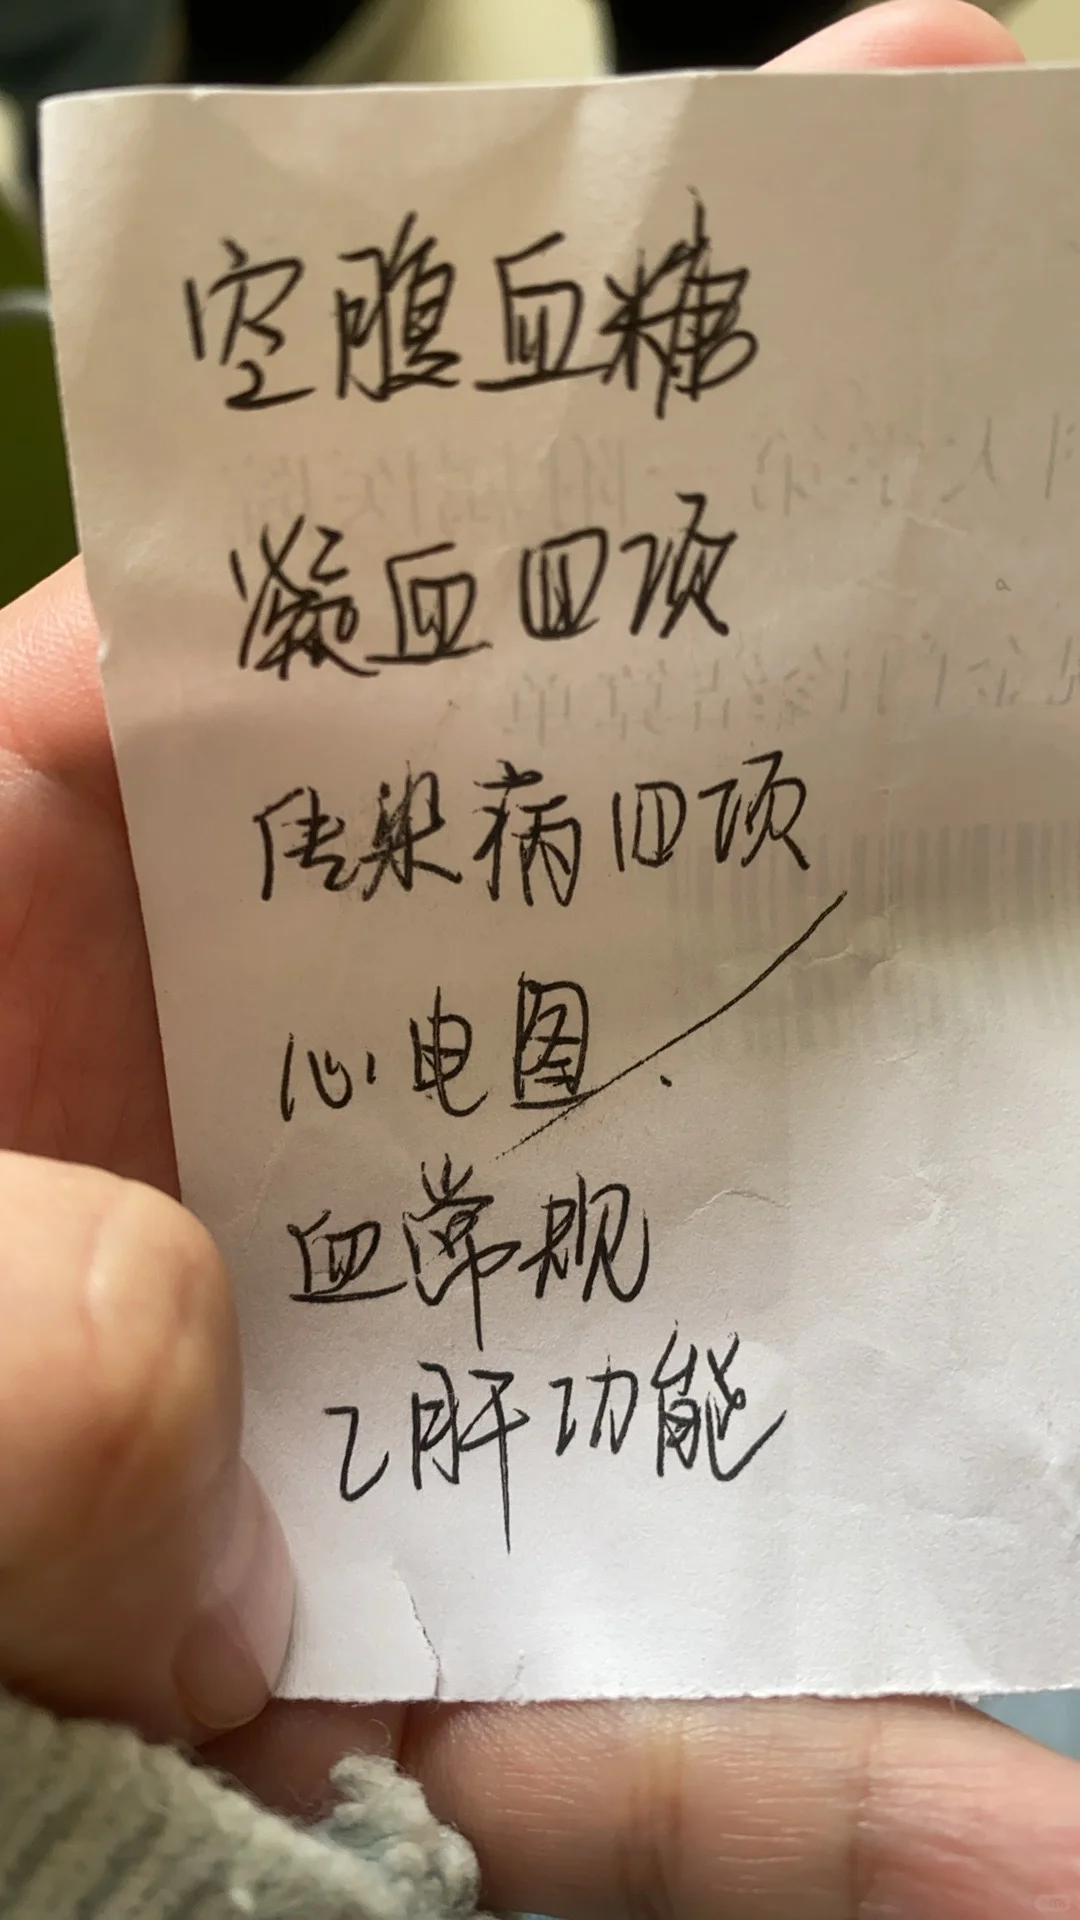 空腹血糖
凝血四项
传染病四项
心电图
血常规
乙肝功能